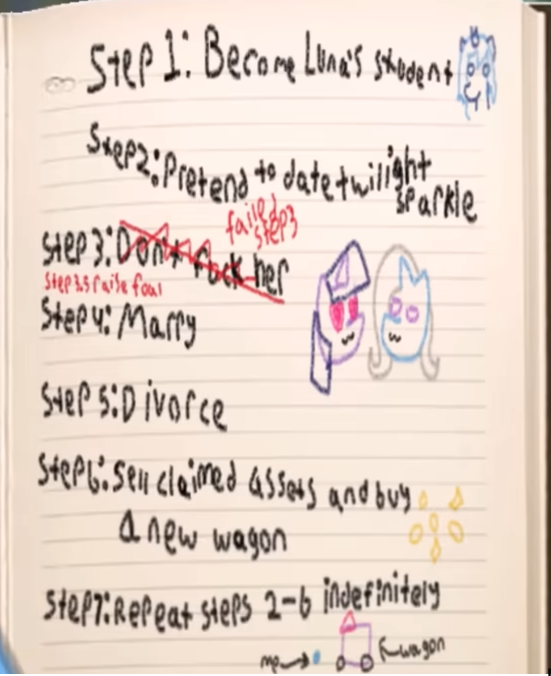 Step 1: Become Luna's student
Step2: Pretend to date twilight
sparkle
failed
step3
Step 3: Don't fuck her
Step3.5 raise foal
Step 4: Marry
Step 5: Divorce
Step6: Sell claimed assets and buy
a new wagon
Step7: Repeat steps 2-6 indefinitely
me→
←wagon